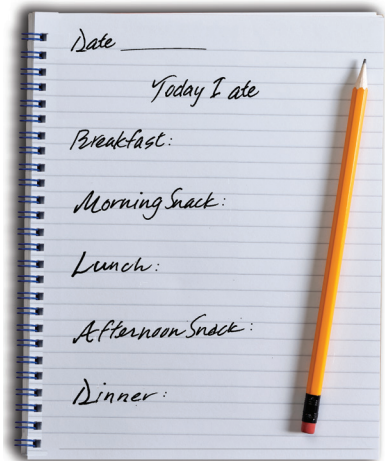 Date ________
Today I ate
Breakfast:
Morning Snack:
Lunch:
Afternoon Snack:
Dinner: